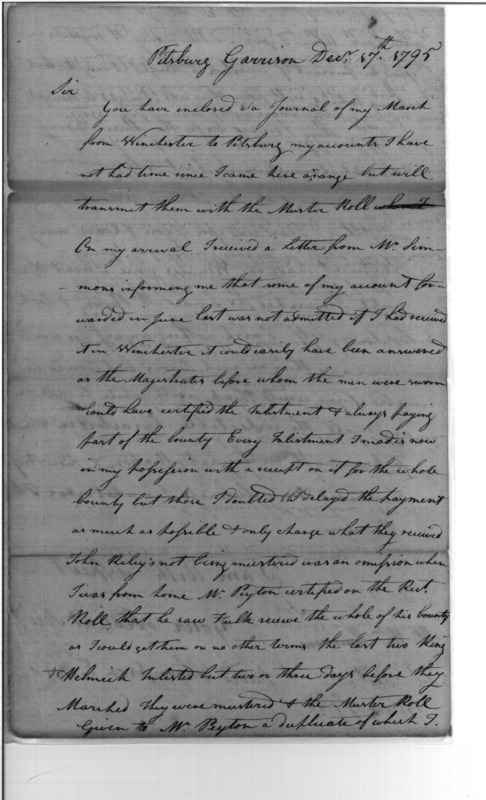 Pitsburg Garrison Decr. 17th. 1795
Sir
You have inclosed a Journal of my March
from Winchester to Pitsburg my accounts I have
not had time since I came here arange but will
transmit them with the Muster Roll
On my arrival I received a Letter from Mr. Sim-
-mons informing me that some of my account for-
warded in June last was not admitted if I had received
it in Winchester it could easily have been answered
as the Magistrates before whom the men were sworn
could have certifyed the Inlistment & always paying
part of the bounty Every Inlistment I mad is now
in my possession with a receipt on it for the whole
bounty but those I doubted I delayed the payment
as much as possible & only charge what they received
John Riley's not being mustered was an omission when
I was from home Mr. Peyton certifyed on the Rect.
Roll that he saw Faulk receive the whole of his bounty
as I could get them on no other terms the last two King
& Helmich Inlisted but two or three days before they
Marched they were mustered & the Muster Roll
Given to Mr. Peyton a duplicate of which I